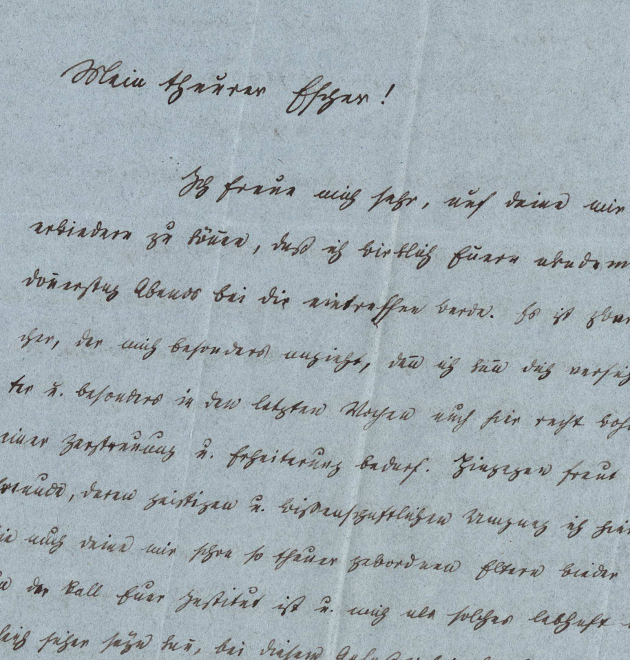 Mein theurer Escher!
Ich freue mich sehr, auf deine mir
erwiedern zu können, daß ich wirklich Euern akadem
donnerstag Abends bei dir eintreffen werde. Es ist zwar
cher, der mich besonders anzieht, denn ich kann dich versich
ter u. besonders in den letzten Wochen auch hier recht woh
einer Zerstreuung u. Erheiterung bedarf. Hingegen freut
freunde, deren geistigen u. wissenschaftlichen Umgang ich hier
ie auch deine mir schon so theuer gewordnen Eltern wieder
der Ball Euer Institut ist u. mich als solches lebhaft
sicher sein kann, bei diesem